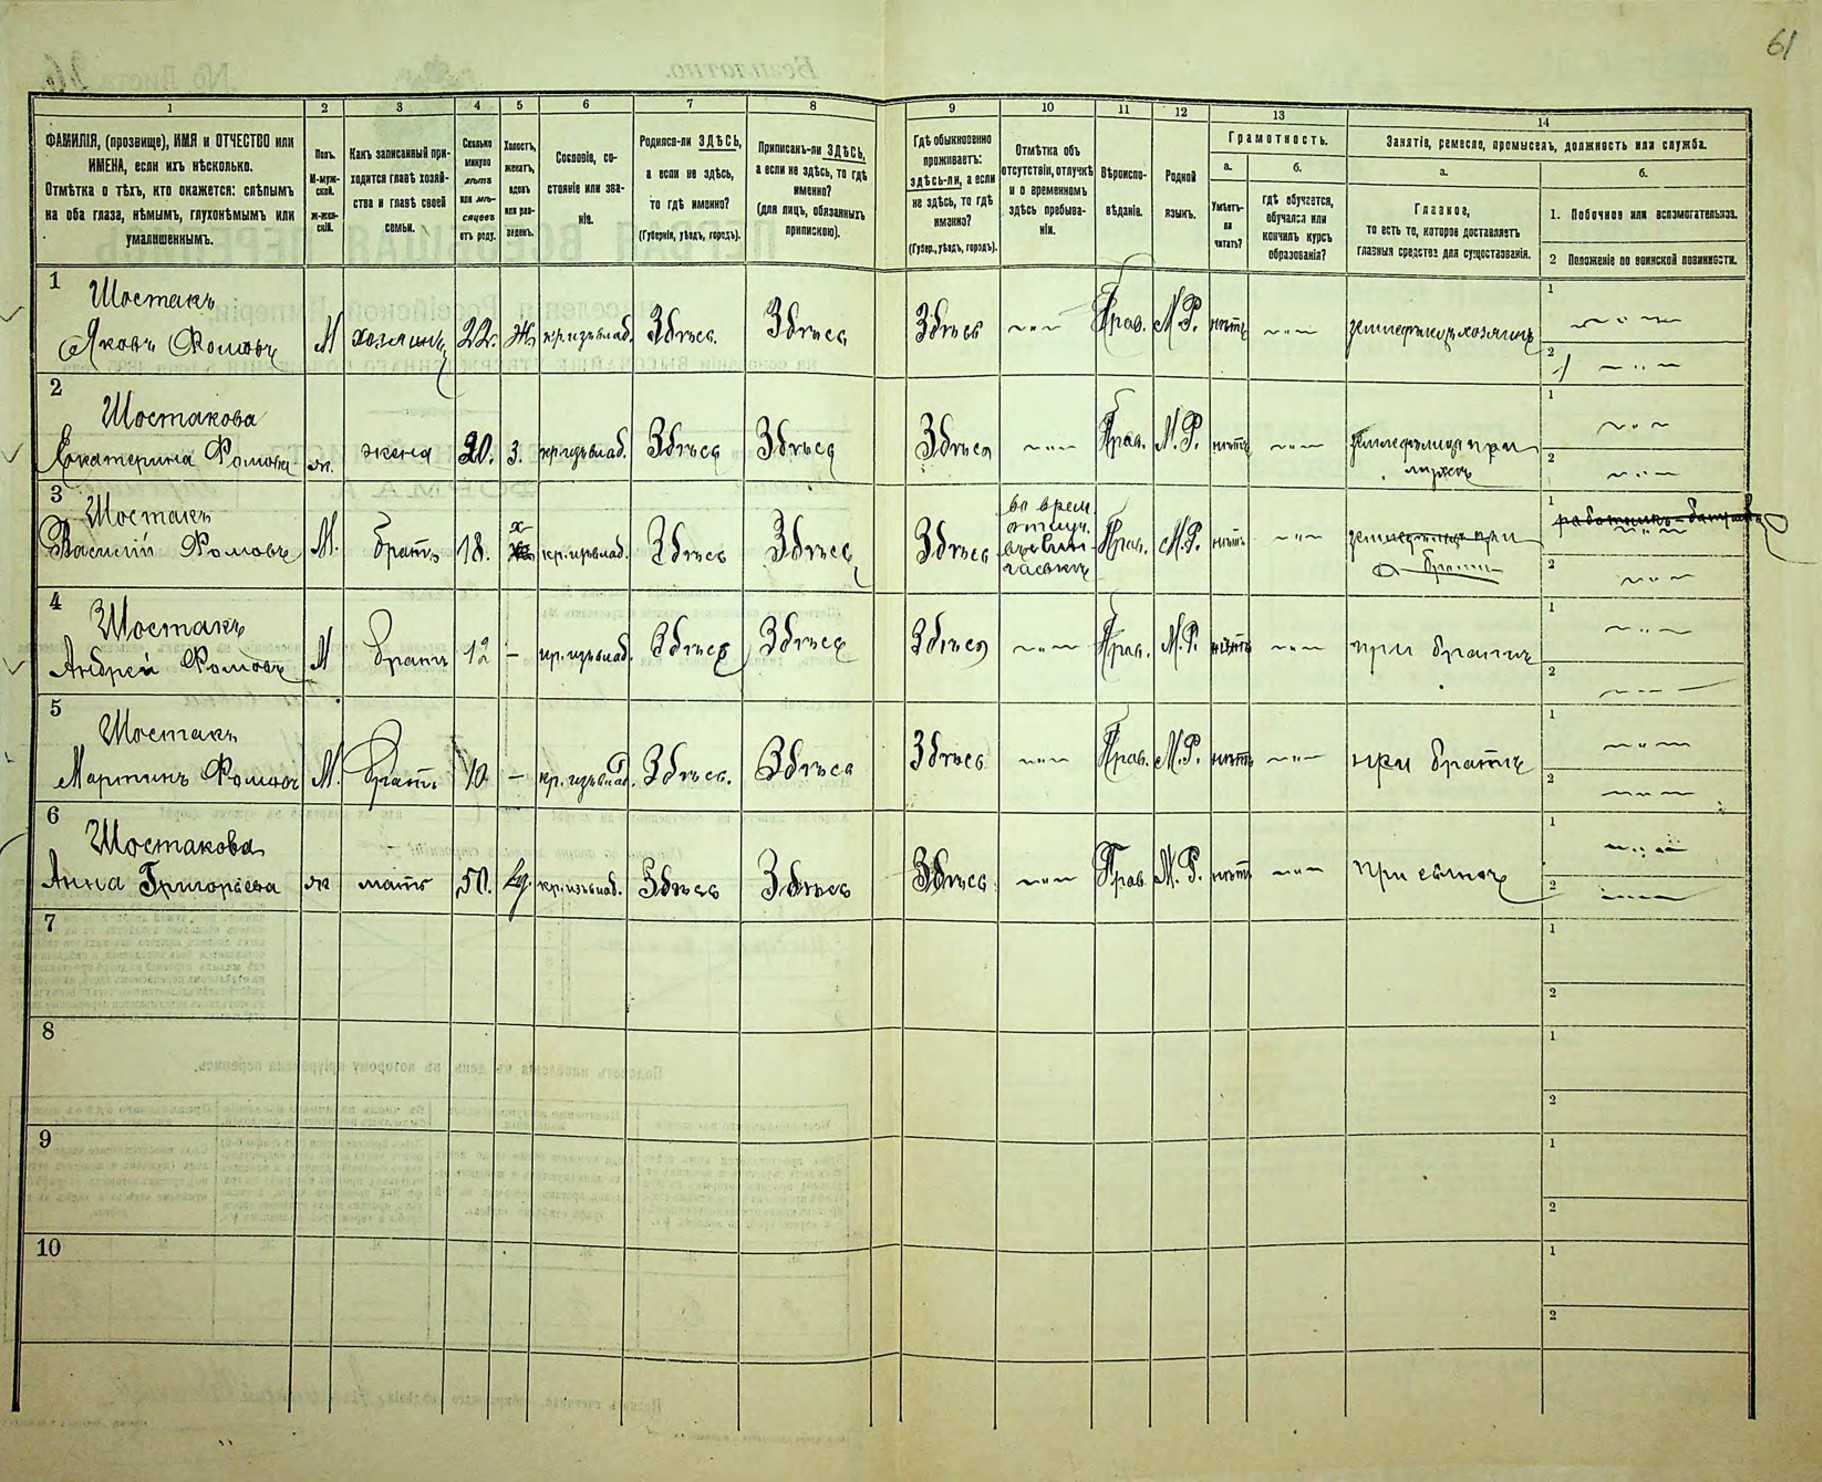 61
1 2 3 4 5 6 7 8 9 10 11 12 13 14
ФАМИЛІЯ, (прозвище), ИМЯ и ОТЧЕСТВО или
ИМЕНА, если ихъ нѣсколько.
Отмѣтка о тѣхъ, кто окажется: слѣпымъ
на оба глаза, нѣмымъ, глухонѣмымъ или
умалишеннымъ.
Полъ.
М-муж-
ской.
Ж-жен-
скій.
Какъ записанный при-
ходится главѣ хозяй-
ства и главѣ своей
семьи.
Сколько
минуло
лѣтъ
или мѣ-
сяцевъ
отъ роду.
Холостъ,
женатъ,
вдовъ
или раз-
веденъ.
Сословіе, со-
стояніе или зва-
ніе.
Родился-ли ЗДѢСЬ,
а если не здѣсь,
то гдѣ именно?
(Губернія, уѣздъ, городъ).
Приписанъ-ли ЗДѢСЬ,
а если не здѣсь, то гдѣ
именно?
(для лицъ, обязанныхъ
припискою).
Гдѣ обыкновенно
проживаетъ:
здѣсь-ли, а если
не здѣсь, то гдѣ
именно?
(Губер., уѣздъ, городъ).
Отмѣтка объ
отсутствіи, отлучкѣ
и о временномъ
здѣсь пребыва-
ніи.
Вѣроиспо-
вѣданіе.
Родной
языкъ.
Грамотность.
а.
Умѣетъ-
ли
читать?
б.
гдѣ обучается,
обучался или
кончилъ курсъ
образованія?
Занятіе, ремесло, промыселъ, должность или служба.
а.
Главное,
то есть то, которое доставляетъ
главныя средства для существованія.
б.
1. Побочное или вспомогательное.
2 Положеніе по воинской повинности.
1
Шостакъ
Яковъ Фомовъ М хозяинъ 22. Ж кр.изъвлад. Здѣсь. Здѣсь Здѣсь Прав. М.Р. нѣтъ земледѣлецъ хозяинъ
1
2
2
Шостакова
Екатерина Фомова ж. жена 20. З. кр.изъвлад. Здѣсь Здѣсь Здѣсь Прав. М.Р. нѣтъ земледѣлица при
мужѣ
1
2
3
Шостакъ
Василій Фомовъ М. братъ 18. х кр.изъвлад. Здѣсь Здѣсь Здѣсь Прав. М.Р. нѣтъ земледѣлецъ при
братѣ
1 работникъ-батракъ
2
4
Шостакъ
Андрей Фомовъ М братъ 12 – кр.изъвлад. Здѣсь Здѣсь Здѣсь Прав. М.Р. нѣтъ при братѣ
1
2
5
Шостакъ
Мартинъ Фомовъ М. братъ 10 – кр.изъвлад. Здѣсь. Здѣсь Здѣсь Прав. М.Р. нѣтъ при братѣ
1
2
6
Шостакова
Анна Григорьева ж мать 50. Вд. кр.изъвлад. Здѣсь Здѣсь Здѣсь Прав М.Р. нѣтъ при сынѣ
1
2
7
1
2
8
1
2
9
1
2
10
1
2